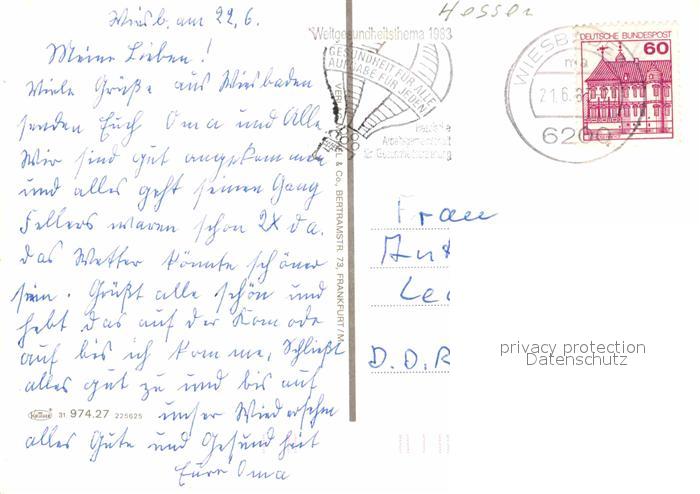 Wiesb. am 22.6.
Meine Lieben!
Viele Grüße aus Wiesbaden
senden Euch Oma und Alle
Wir sind gut angekommen
und alles geht seinen Gang
Fellers waren schon 2x da.
das Wetter könnte schöner
sein. Grüßt alle schön und
hebt das auf der Komode
auf bis ich komme, Schließt
alles gut zu und bis auf
unser Wiedersehn
alles Gute und Gesundheit
Eure Oma
Krüger 31. 974.27 225625
& Co., BERTRAMSTR. 73, FRANKFURT/M
Hessen
Weltgesundheitsthema 1983
GESUNDHEIT FÜR ALLE
AUFGABE FÜR JEDEN
Hessische
Arbeitsgemeinschaft
für Gesundheitserziehung
WIESB
ma
21.6.
6200
DEUTSCHE BUNDESPOST
60
Frau
D.D.R
privacy protection
Datenschutz